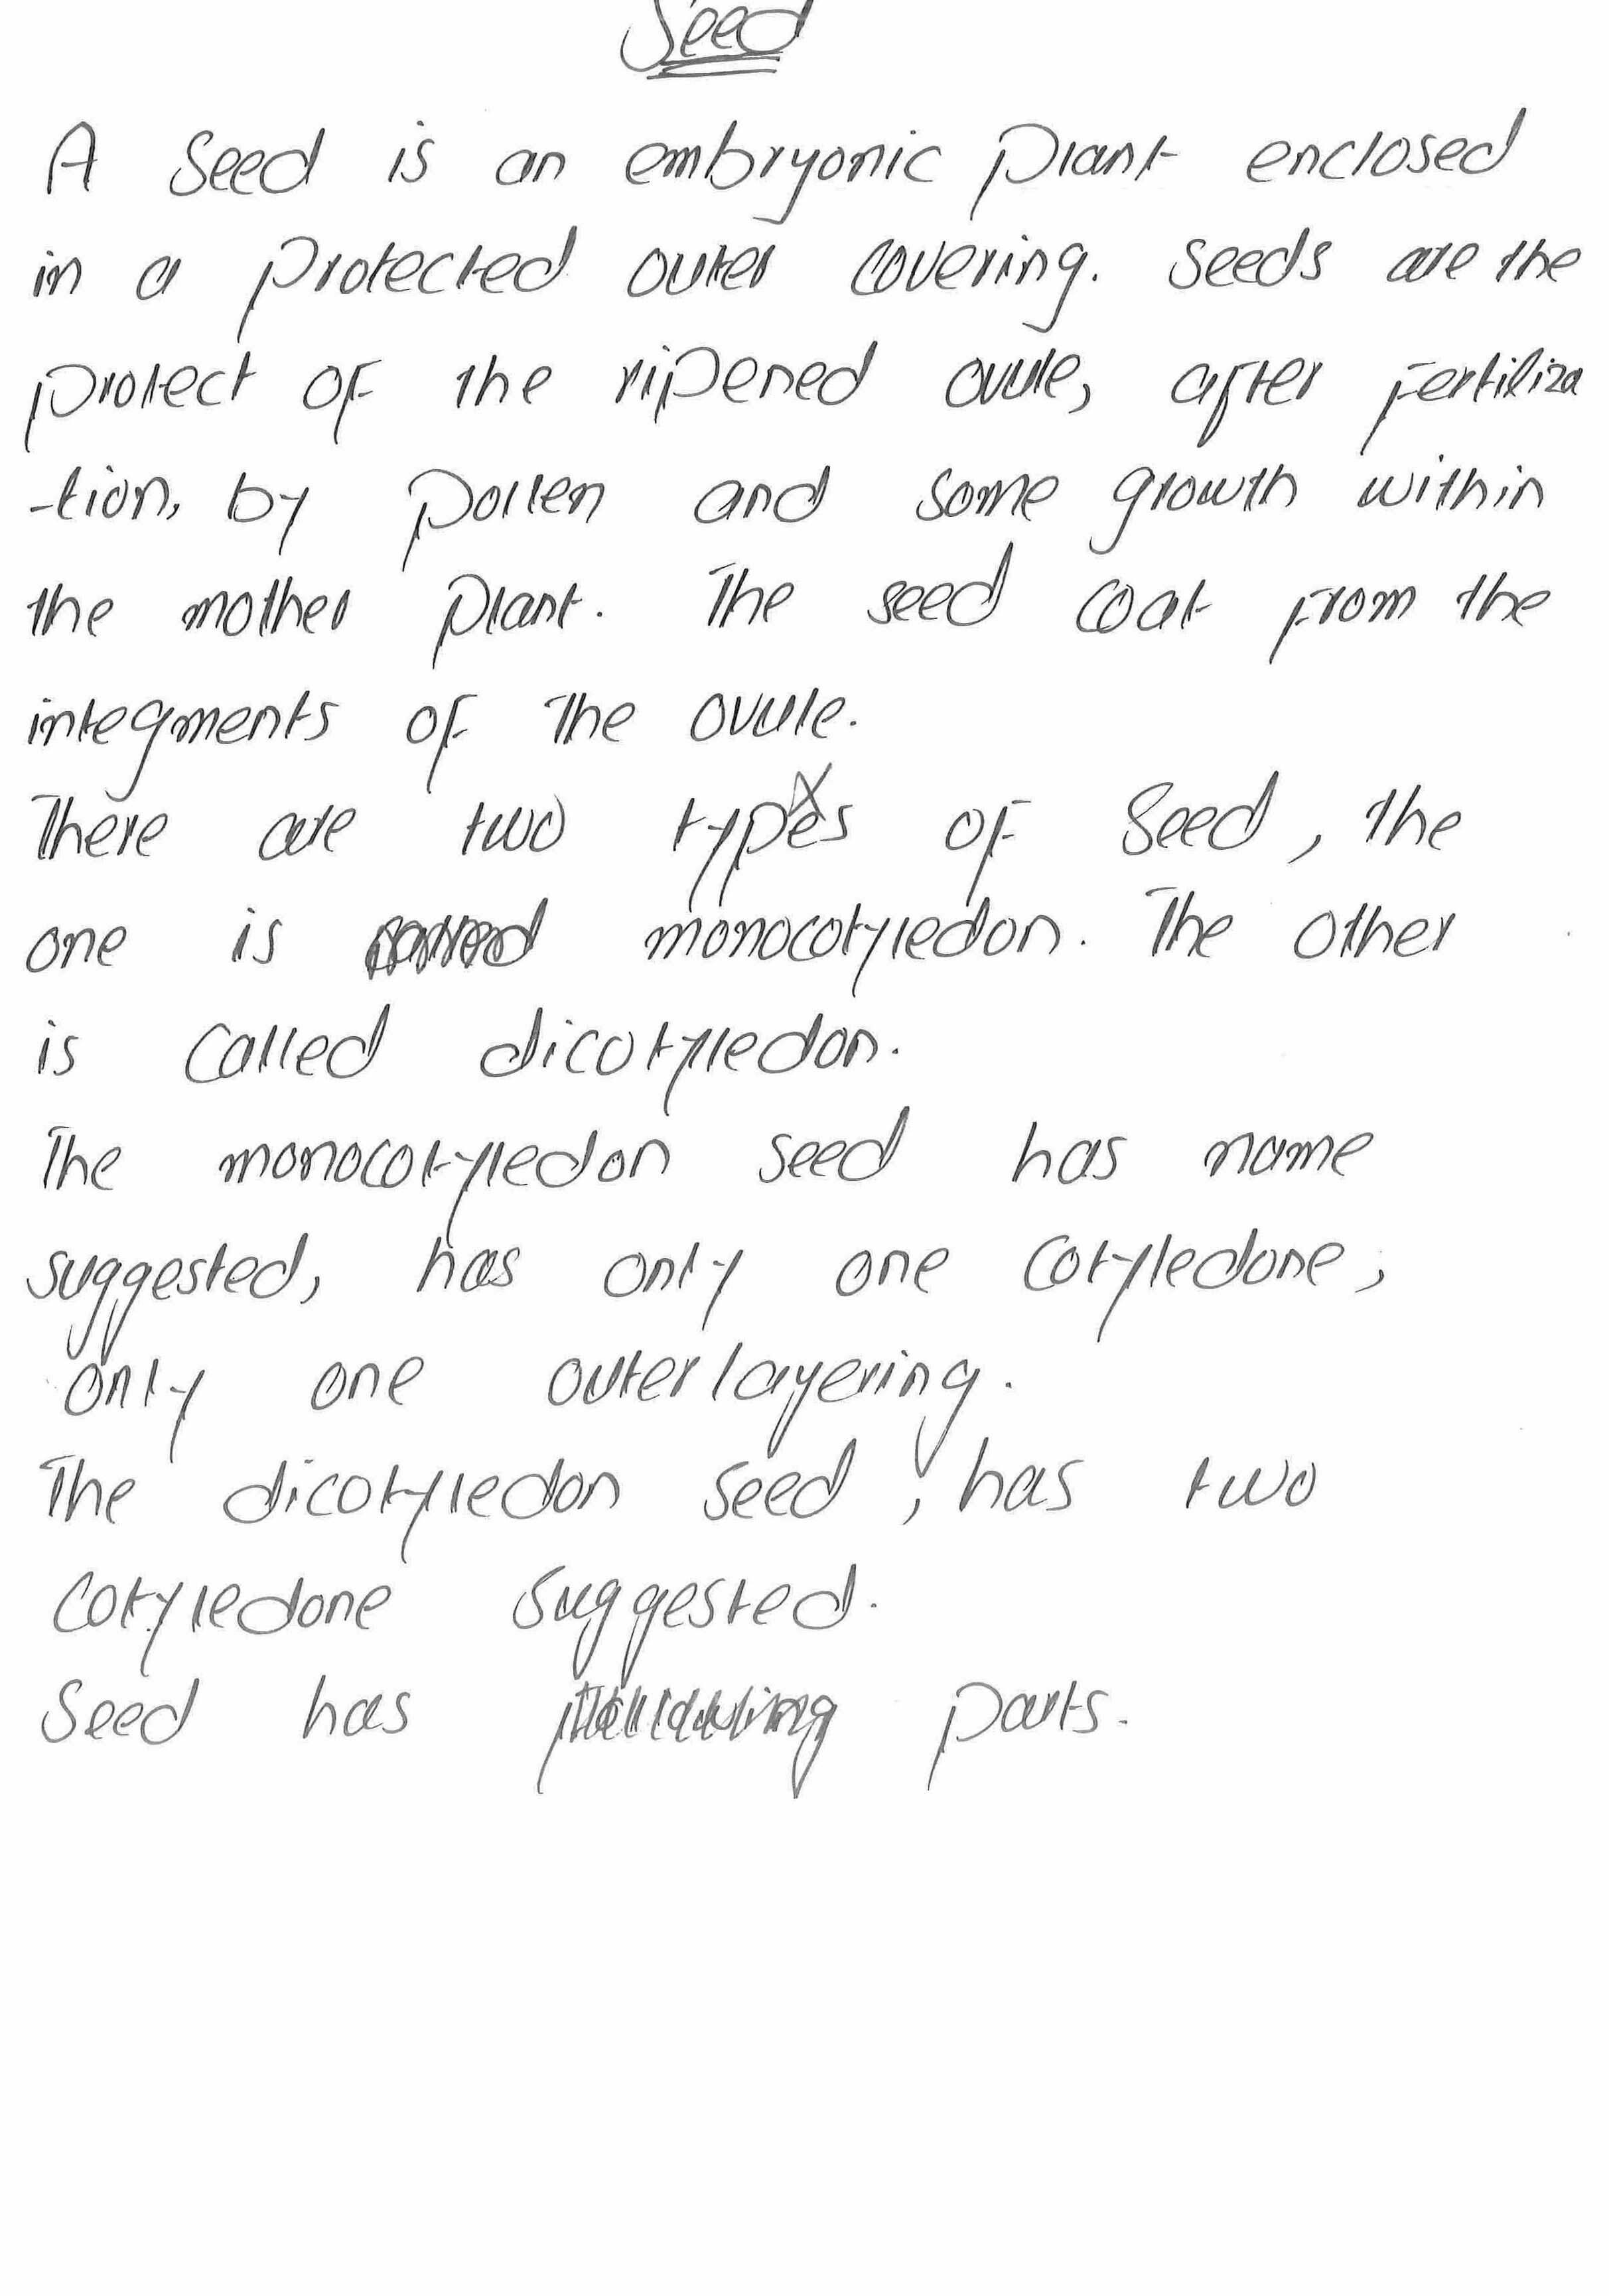 Seed
A Seed is an embryonic plant enclosed
in a protected outer covering. Seeds are the
protect of the ripened ovule, after fertiliza
-tion, by pollen and some growth within
the mother plant. The seed coat from the
integments of the ovule.
There are two types of Seed, the
one is monocotyledon. The other
is called dicotyledon.
The monocotyledon seed has name
suggested, has only one cotyledone,
only one outer layering.
The dicotyledon seed, has two
cotyledone suggested.
Seed has parts.